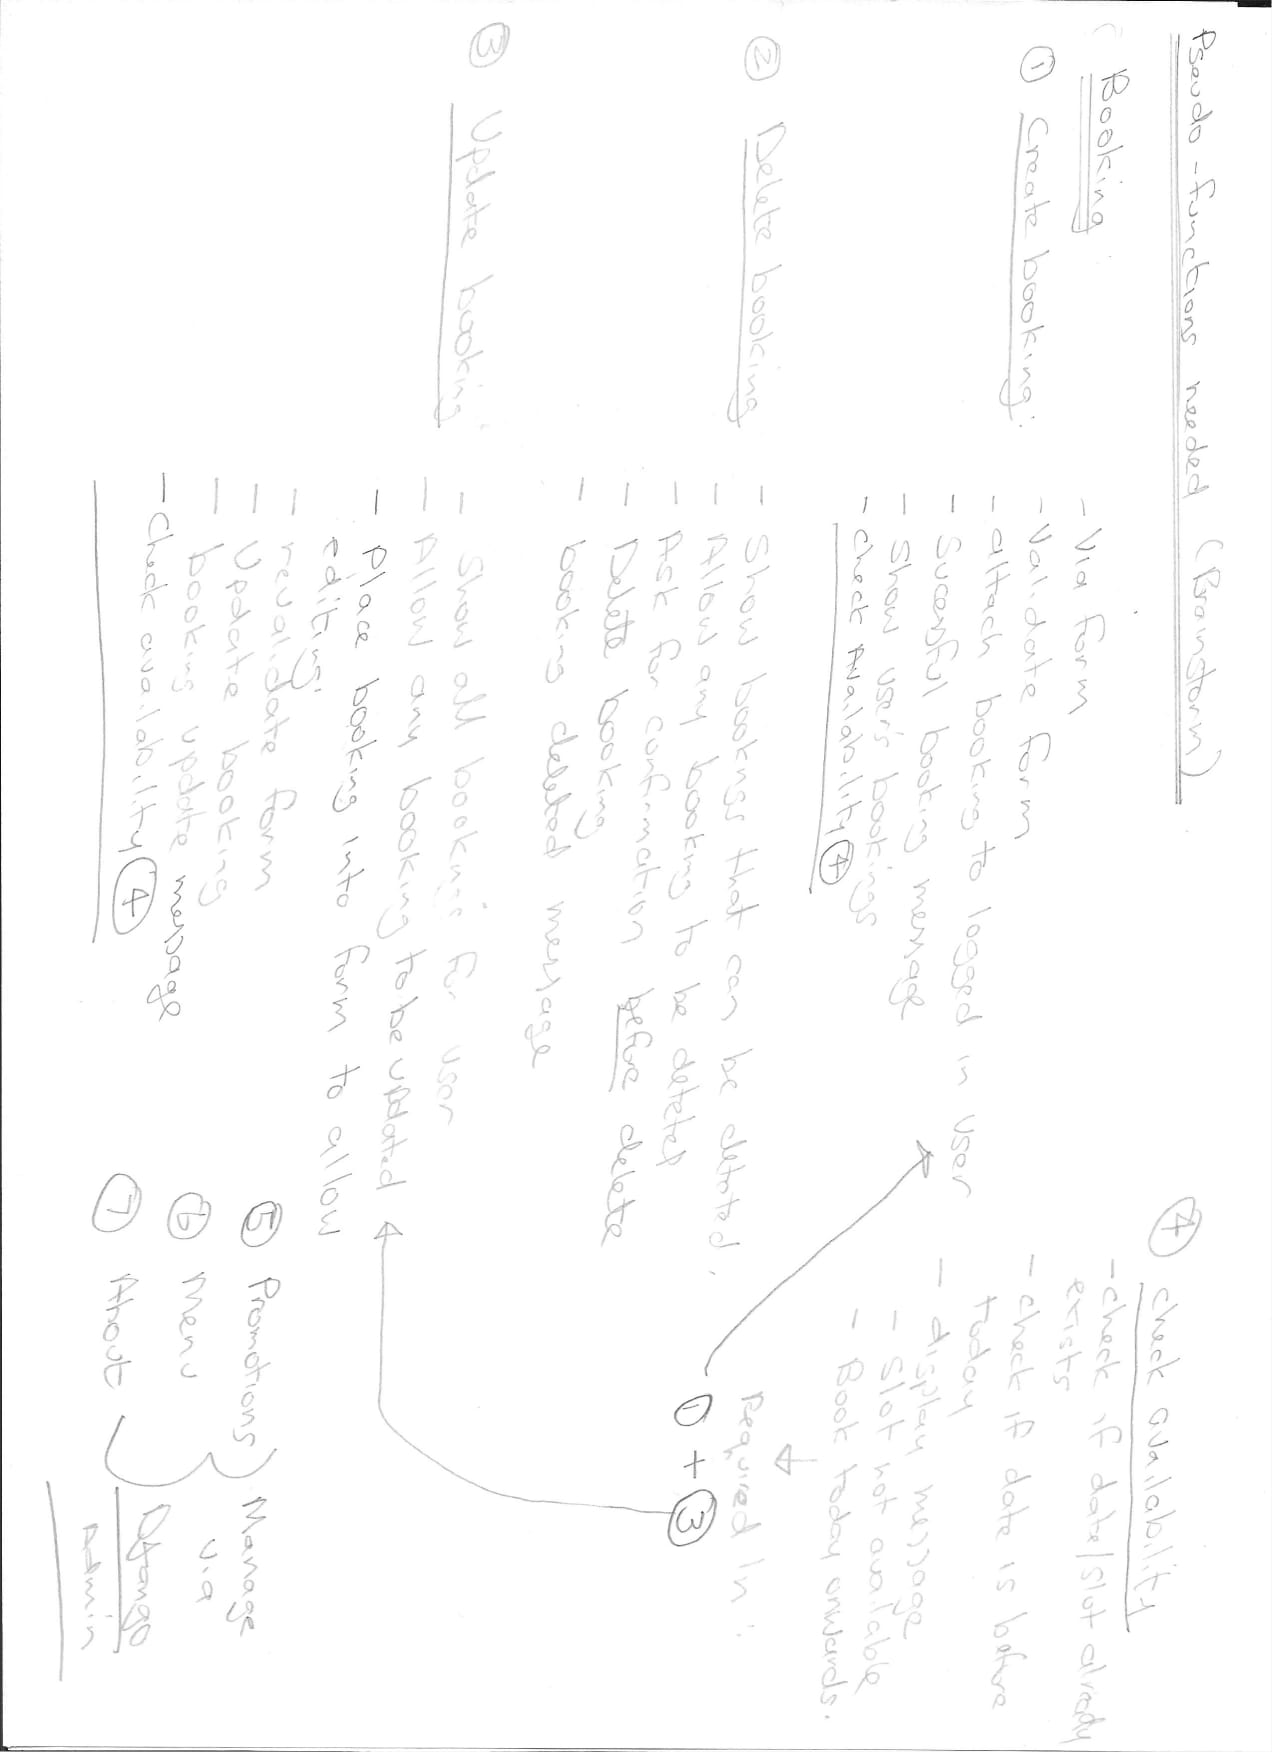 Pseudo-functions needed (Brainstorm)
Booking
① Create booking:
- Via form
- Validate form
- attach booking to logged in user
- Sucessful booking message
- Show user's bookings
- check Availability ④
② Delete booking
- Show bookings that can be deleted.
- Allow any booking to be deleted
- Ask for confirmation before delete
- Delete booking
- booking deleted message
③ Update booking
- Show all bookings for user
- Allow any booking to be updated
- Place booking into form to allow
editing.
- revalidate form
- Update booking
- booking update message
- Check availability ④
④ check availability
- check if date/slot already
exists
- check if date is before
today
- display message
- Slot not available
- Book today onwards.
Required in:
① + ③
⑤ Promotions
⑥ Menu
⑦ About
Manage
via
Django
Admin